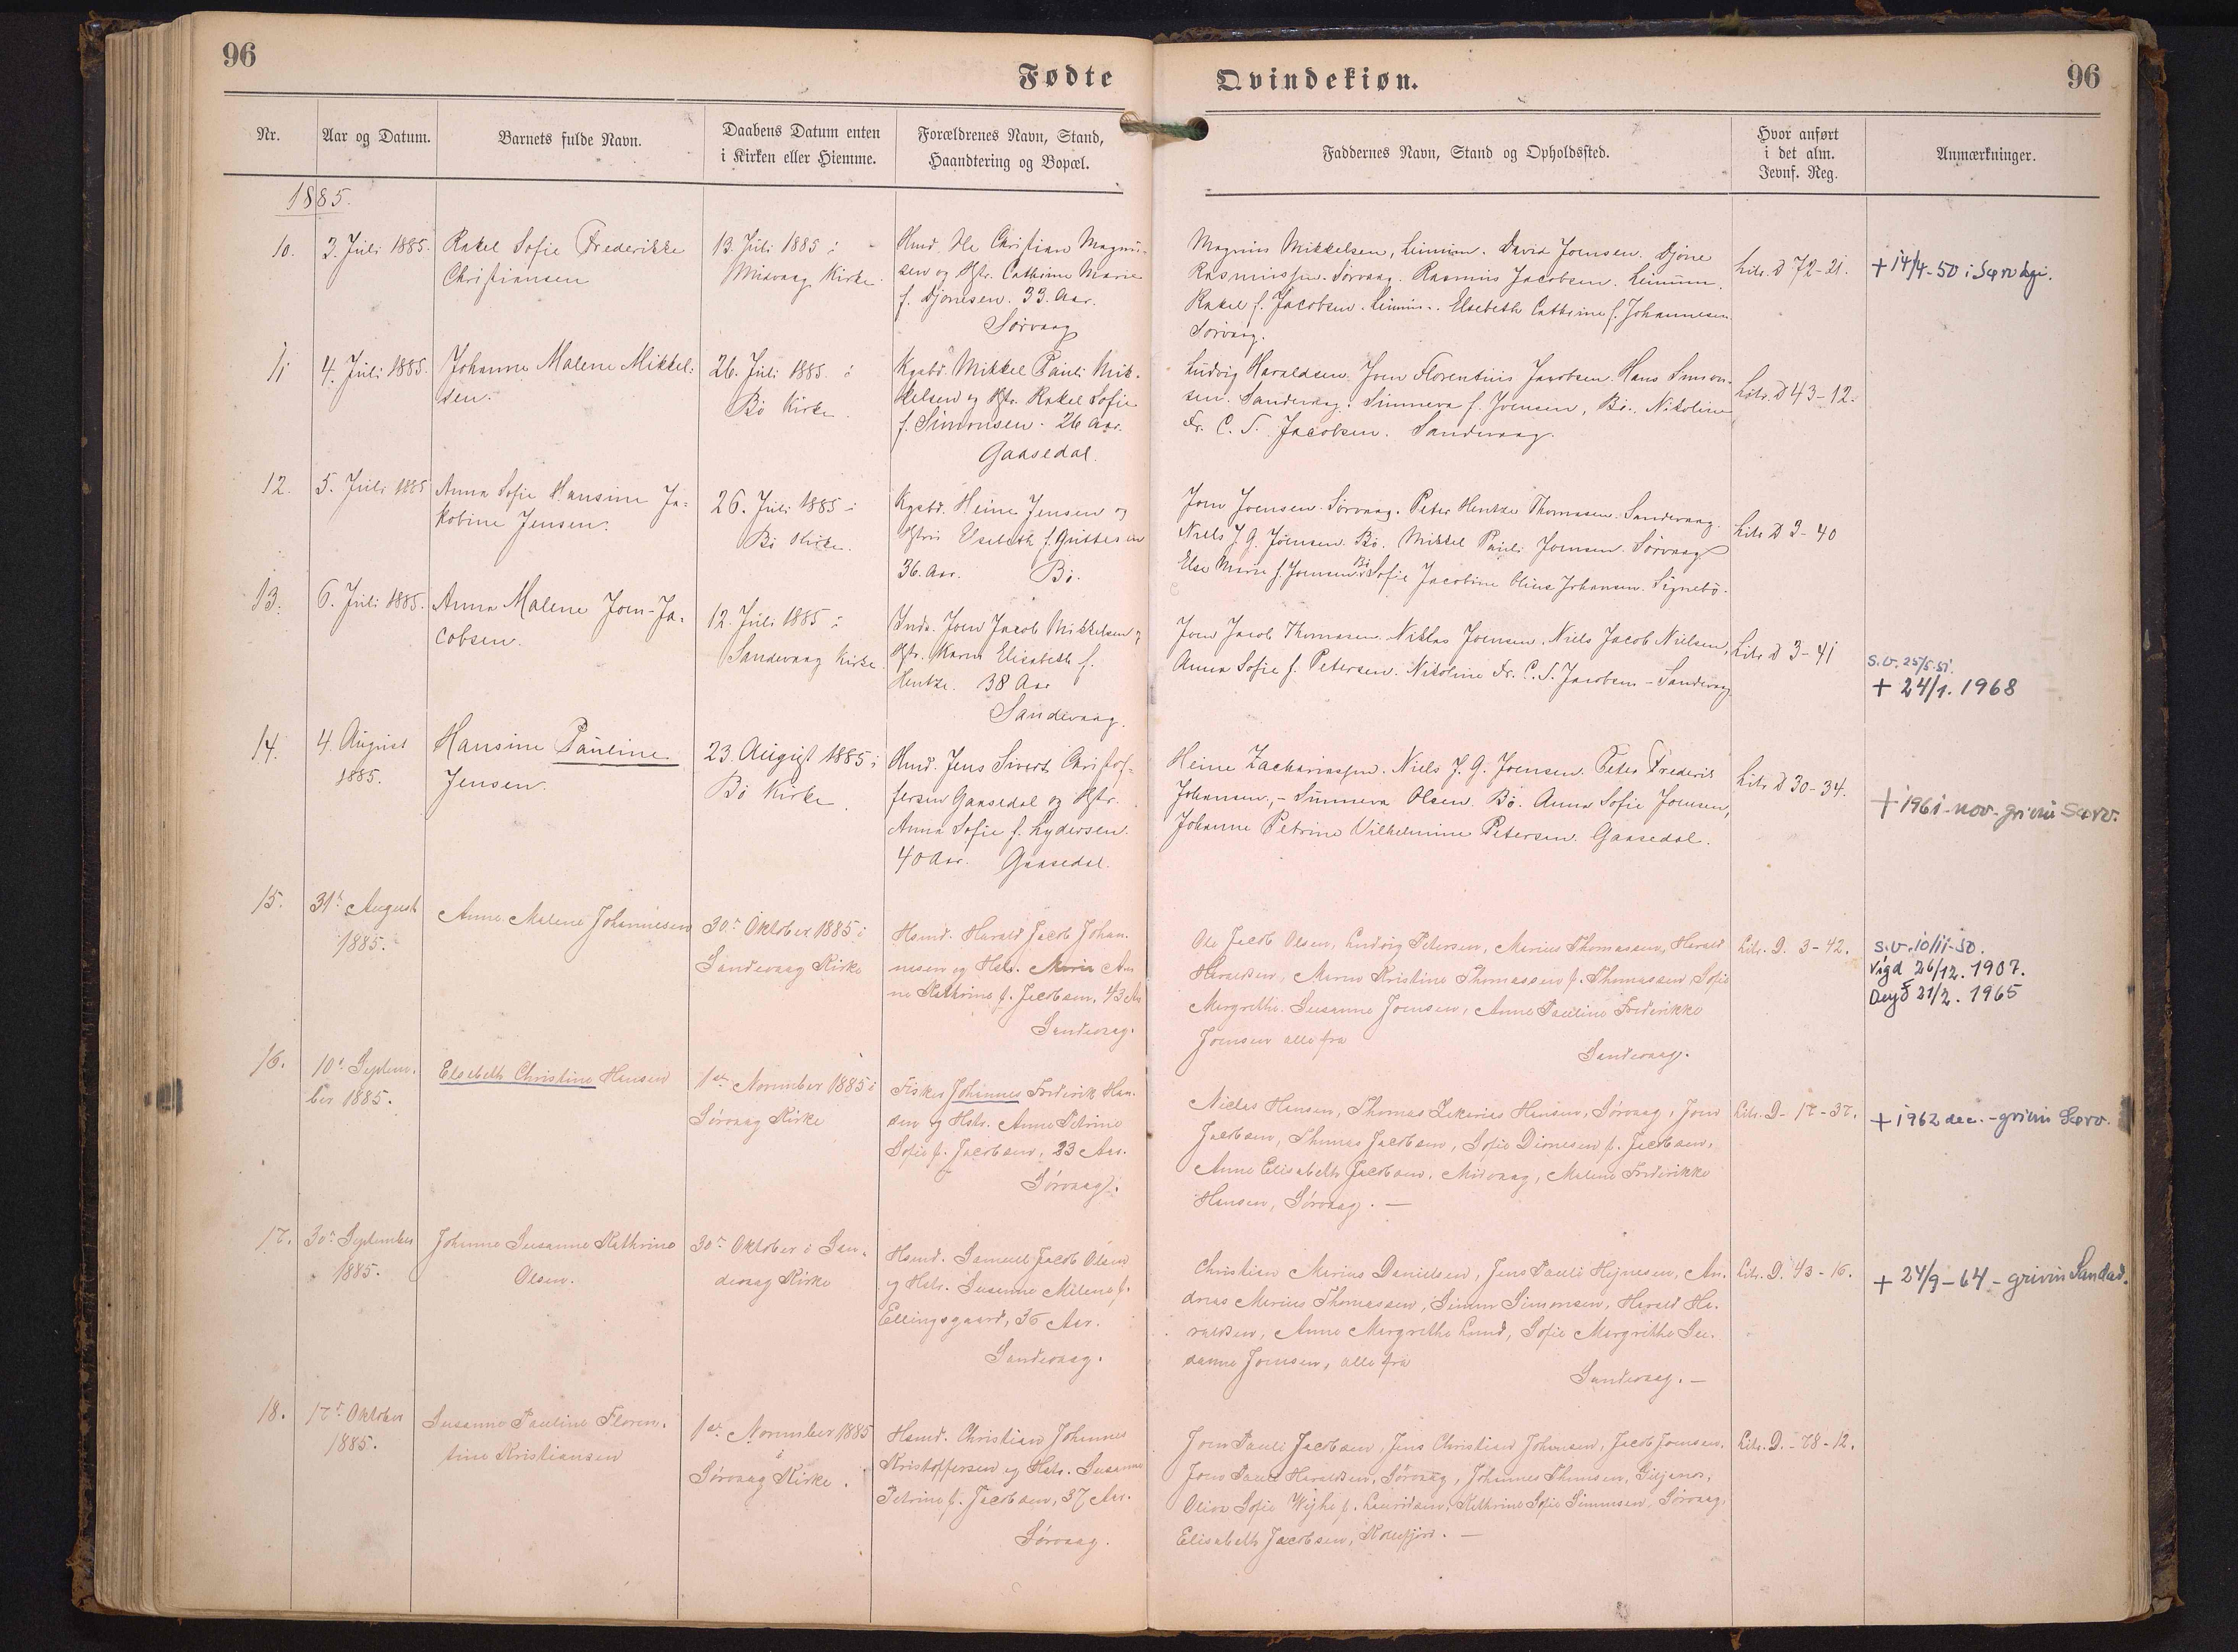 96
Fødte
Qvindekiøn.
96
Nr.
Aar og Datum.
Barnets fulde Navn.
Daabens Datum enten
i Kirken eller Hiemme.
Forældrenes Navn, Stand,
Haandtering og Bopæl.
Faddernes Navn, Stand og Opholdssted.
Hvor anført
i det alm.
Jevnf. Reg.
Anmærkninger.
1885.
10.
3. Juli 1885.
Rakel Sofie Frederikke
Christiansen
13. Juli 1885 i
Midvaag Kirke.
Hmd. Ole Christian Magnu-
sen og Hstr. Cathrine Marie
f. Djonesen. 33. Aar.
Sørvaag
Magnus Mikkelsen, Leinum. David Joensen. Djone
Rasmussen. Sørvaag. Rasmus Jacobsen. Leinum.
Rakel f. Jacobsen. Leinum. Elsebeth Cathrine f. Johannesen
Sørvaag.
Litr. D 72-21.
+ 14/4-50 i Sørvági.
11
4. Juli 1885.
Johanne Malene Mikkel-
sen.
26. Juli 1885 i
Bø Kirke.
Kgsbd. Mikkel Pauli Mik-
kelsen og Hstr. Rakel Sofie
f. Simonsen. 26 Aar.
Gaasedal.
Ludvig Haraldsen. Joen Florentius Jacobsen. Hans Simon-
sen. Sandevaag. Sunneva f. Joensen, Bø. Nikoline
Fr. C. S. Jacobsen. Sandevaag.
Litr. D 43-12.
12.
5. Juli 1885
Anna Sofie Hansine Ja-
kobine Jensen.
26. Juli 1885 i
Bø Kirke.
Kgsbd. Heine Jensen og
Elsebeth f. Guttesen
36. Aar. Bø.
Joen Joensen. Sørvaag. Peter Hentze Thomasen. Sandevaag.
Niels J. G. Joensen. Bø. Mikkel Pauli Joensen. Sørvaag
Else Marie f. Joensen Bø Sofie Jacobine Oline Johansen. Signebø.
Litr D 3-40
13.
6. Juli 1885.
Anna Malene Joen-Ja-
cobsen.
12. Juli 1885 i
Sandevaag Kirke.
Inds. Joen Jacob Mikkelsen og
Hstr. Karen Elisabeth f.
Hentze. 38 Aar
Sandevaag.
Joen Jacob Thomasen. Niklas Joensen. Niels Jacob Nielsen,
Anna Sofie f. Petersen. Nikoline Fr. C. S. Jacobsen - Sandevaag
Litr D 3-41
s.v. 25/5.51.
+ 24/1. 1968
14.
4. August
1885.
Hansine Pauline
Jensen.
23. August 1885 i
Bø Kirke.
Hmd. Jens Sivert Christof-
fersen Gaasedal og Hstr.
Anna Sofie f. Lydersen.
40 Aar. Gaasedal.
Heine Zachariassen. Niels J. G. Joensen. Peter Frederik
Johansen, - Sunneva Olsen. Bø. Anna Sofie Joensen,
Johanne Petrine Vilhelmine Petersen. Gaasedal.
Litr D 30-34.
+ 1961 - nov - grivin Sørv.
15.
31te August
1885.
Anna Malene Johannesen
30te Oktober 1885 i
Sandevaag Kirke
Hsmd. Harald Jacob Johan-
nesen og Hstr. Maria An-
na Kathrine f. Jacobsen, 43 Aar
Sandevaag.
Ole Jacob Olsen, Ludvig Petersen, Marius Thomassen, Harald
Haraldsen, Maren Kristine Thomassen f. Thomassen Sofie
Margrethe Susanne Joensen, Anne Pauline Frederikke
Joensen alle fra
Sandevaag.
Litr. D. 3-42.
s.v. 10/11-50.
Vigd 26/12. 1907.
Deyð 21/2. 1965
16.
10de Septem-
ber 1885.
Elsebeth Christine Hansen
1ste November 1885 i
Sørvaag Kirke
Fisker Johannes Frederik Han-
sen og Hstr. Anne Petrine
Sofie f. Jacobsen, 23 Aar.
Sørvaag.
Niclas Hansen, Thomas Zekarias Hansen, Sørvaag, Joen
Jacobsen, Thomas Jacobsen, Sofie Dionesen f. Jacobsen,
Anne Elisabeth Jacobsen, Midvaag, Malene Frederikke
Hansen, Sørvaag. -
Litr. D. - 17-37.
+ 1962 dec. - grivin Sørv.
17.
30te September
1885.
Johanne Susanne Kathrine
Olsen.
30te Oktober i San-
devaag Kirke
Hsmd. Samuel Jacob Olsen
og Hstr. Susanne Milene f.
Ellingsgaard, 36 Aar.
Sandevaag.
Christian Marius Danielsen, Jens Pauli Hejnesen, An-
dreas Marius Thomassen, Simon Simonsen, Harald Ha-
raldsen, Anne Margrethe Lund, Sofie Margrethe Su-
sanne Joensen, alle fra
Sandevaag. -
Litr. D. 43-16.
+ 24/9-64 - grivin Sandav.
18.
17de Oktober
1885.
Susanne Pauline Floren-
tine Kristiansen
1ste November 1885
i
Sørvaag Kirke.
Hsmd. Christian Johannes
Kristoffersen og Hstr. Susanne
Petrine f. Jacobsen, 37 Aar.
Sørvaag.
Joen Pauli Jacobsen, Jens Christian Johansen, Jacob Joensen,
Joen Pauli Haraldsen, Sørvaag, Johannes Thomsen, Giljanes,
Oliva Sofie Wejhe f. Lauridsen, Kathrine Sofie Simonsen, Sørvaag,
Elisabeth Jacobsen, Kollefjord. -
Litr. D. - 78-12.